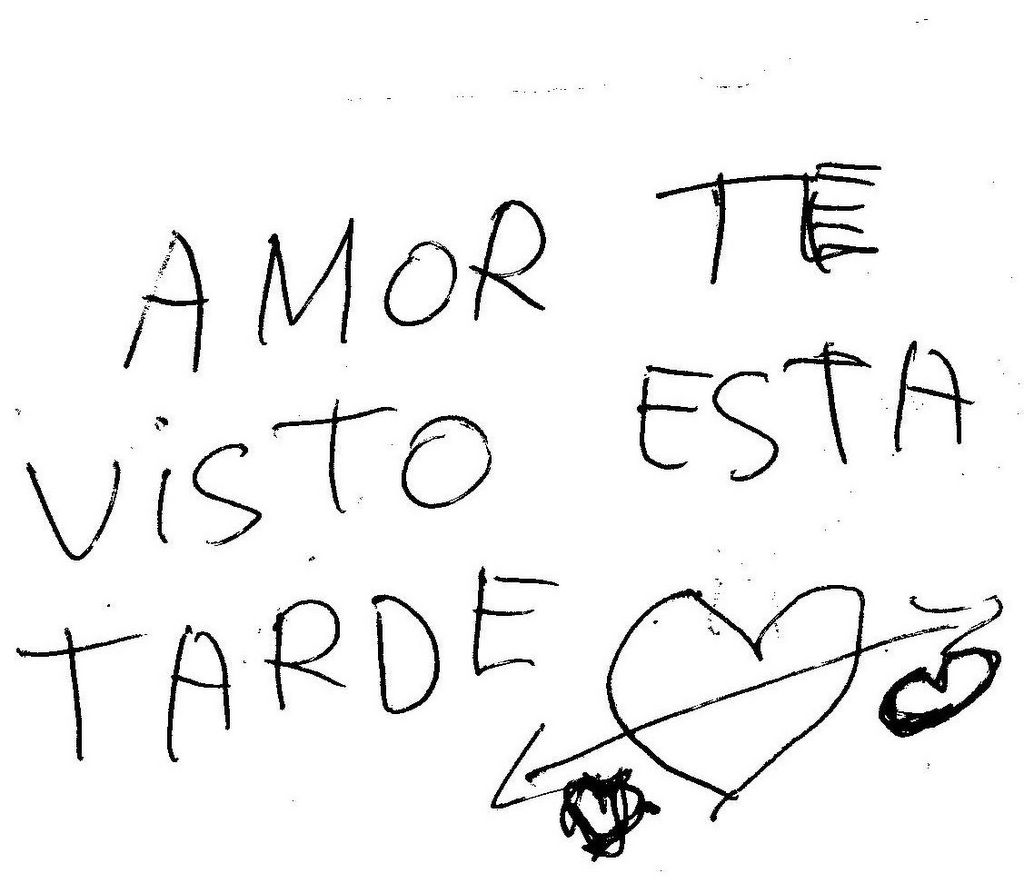 AMOR TE
ViSTO ESTA
TARDE